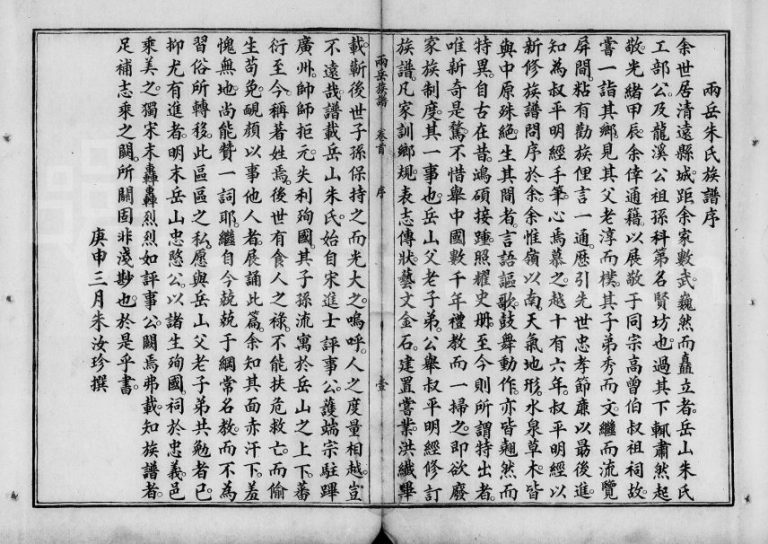 兩岳朱氏族譜序
余世居清遠縣城。距余家數武。巍然而矗立者。岳山朱氏
工部公及龍溪公祖孫科第名賢坊也。過其下。輒肅然起
敬。光緒甲辰。余倖通籍。以展敬于同宗高曾伯叔祖祠。故
嘗一詣其鄉。見其父老淳而樸。其子弟秀而文。繼而流覽
屏間。粘有勸族俚言一通。歷引先世忠孝節廉。以最後進。
知為叔平明經手筆。心焉慕之。越十有六年。叔平明經以
新修族譜。問序於余。余惟嶺以南。天氣地形。水泉草木。皆
與中原殊絕。生其間者。言語謳歌。鼓舞動作。亦皆翹然而
特異。自古在昔。鴻碩接踵。照耀史册。至今則所謂特出者。
唯新奇是驚。不惜舉中國數千年禮教而一掃之。即欲廢
家族制度。其一事也。岳山父老子弟。公舉叔平明經修訂
族譜。凡家訓鄉規。表志傳狀。藝文金石。建置嘗業。洪纖畢
兩岳族譜 卷首 序 壹
載。蘄後世子孫保持之而光大之。嗚呼。人之度量相越。豈
不遠哉。譜載岳山朱氏。始自宋進士評事公。護端宗駐蹕
廣州。帥師拒元。失利殉國。其子孫流寓於岳山之上下。蕃
衍至今。稱著姓焉。後世有食人之祿。不能扶危救亡。而偷
生苟免。靦顏以事他人者。展誦此篇。余知其面赤汗下。羞
愧無地。尚能贊一詞耶。繼自今。兢兢于綱常名教。而不為
習俗所轉移。此區區之私。願與岳山父老子弟共勉者。已
抑尤有進者。明末岳山忠愍公。以諸生殉國。祠於忠義。邑
乘美之。獨宋末轟轟烈烈如評事公。闕焉弗載。知族譜者。
足補志乘之闕。所關固非淺尠也。於是乎書。
庚申三月朱汝珍撰